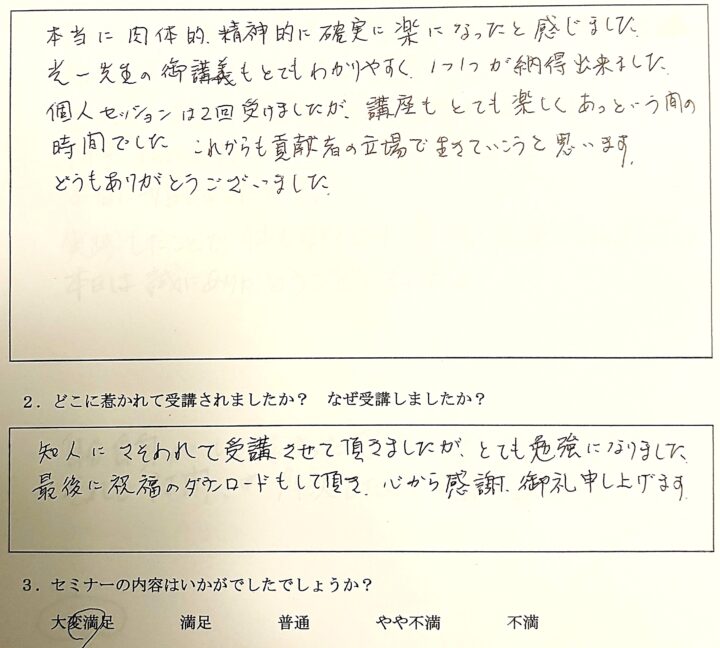 本当に肉体的、精神的に確実に楽になったと感じました。
光一先生の御講義もとてもわかりやすく、1つ1つが納得出来ました。
個人セッションは2回受けましたが、講座もとても楽しくあっという間の
時間でした これからも貢献者の立場で生きていこうと思います。
どうもありがとうございました。
2．どこに惹かれて受講されましたか？　なぜ受講しましたか？
知人にさそわれて受講させて頂きましたが、とても勉強になりました。
最後に祝福のダウンロードもして頂き、心から感謝、御礼申し上げます。
3．セミナーの内容はいかがでしたでしょうか？
大変満足　満足　普通　やや不満　不満